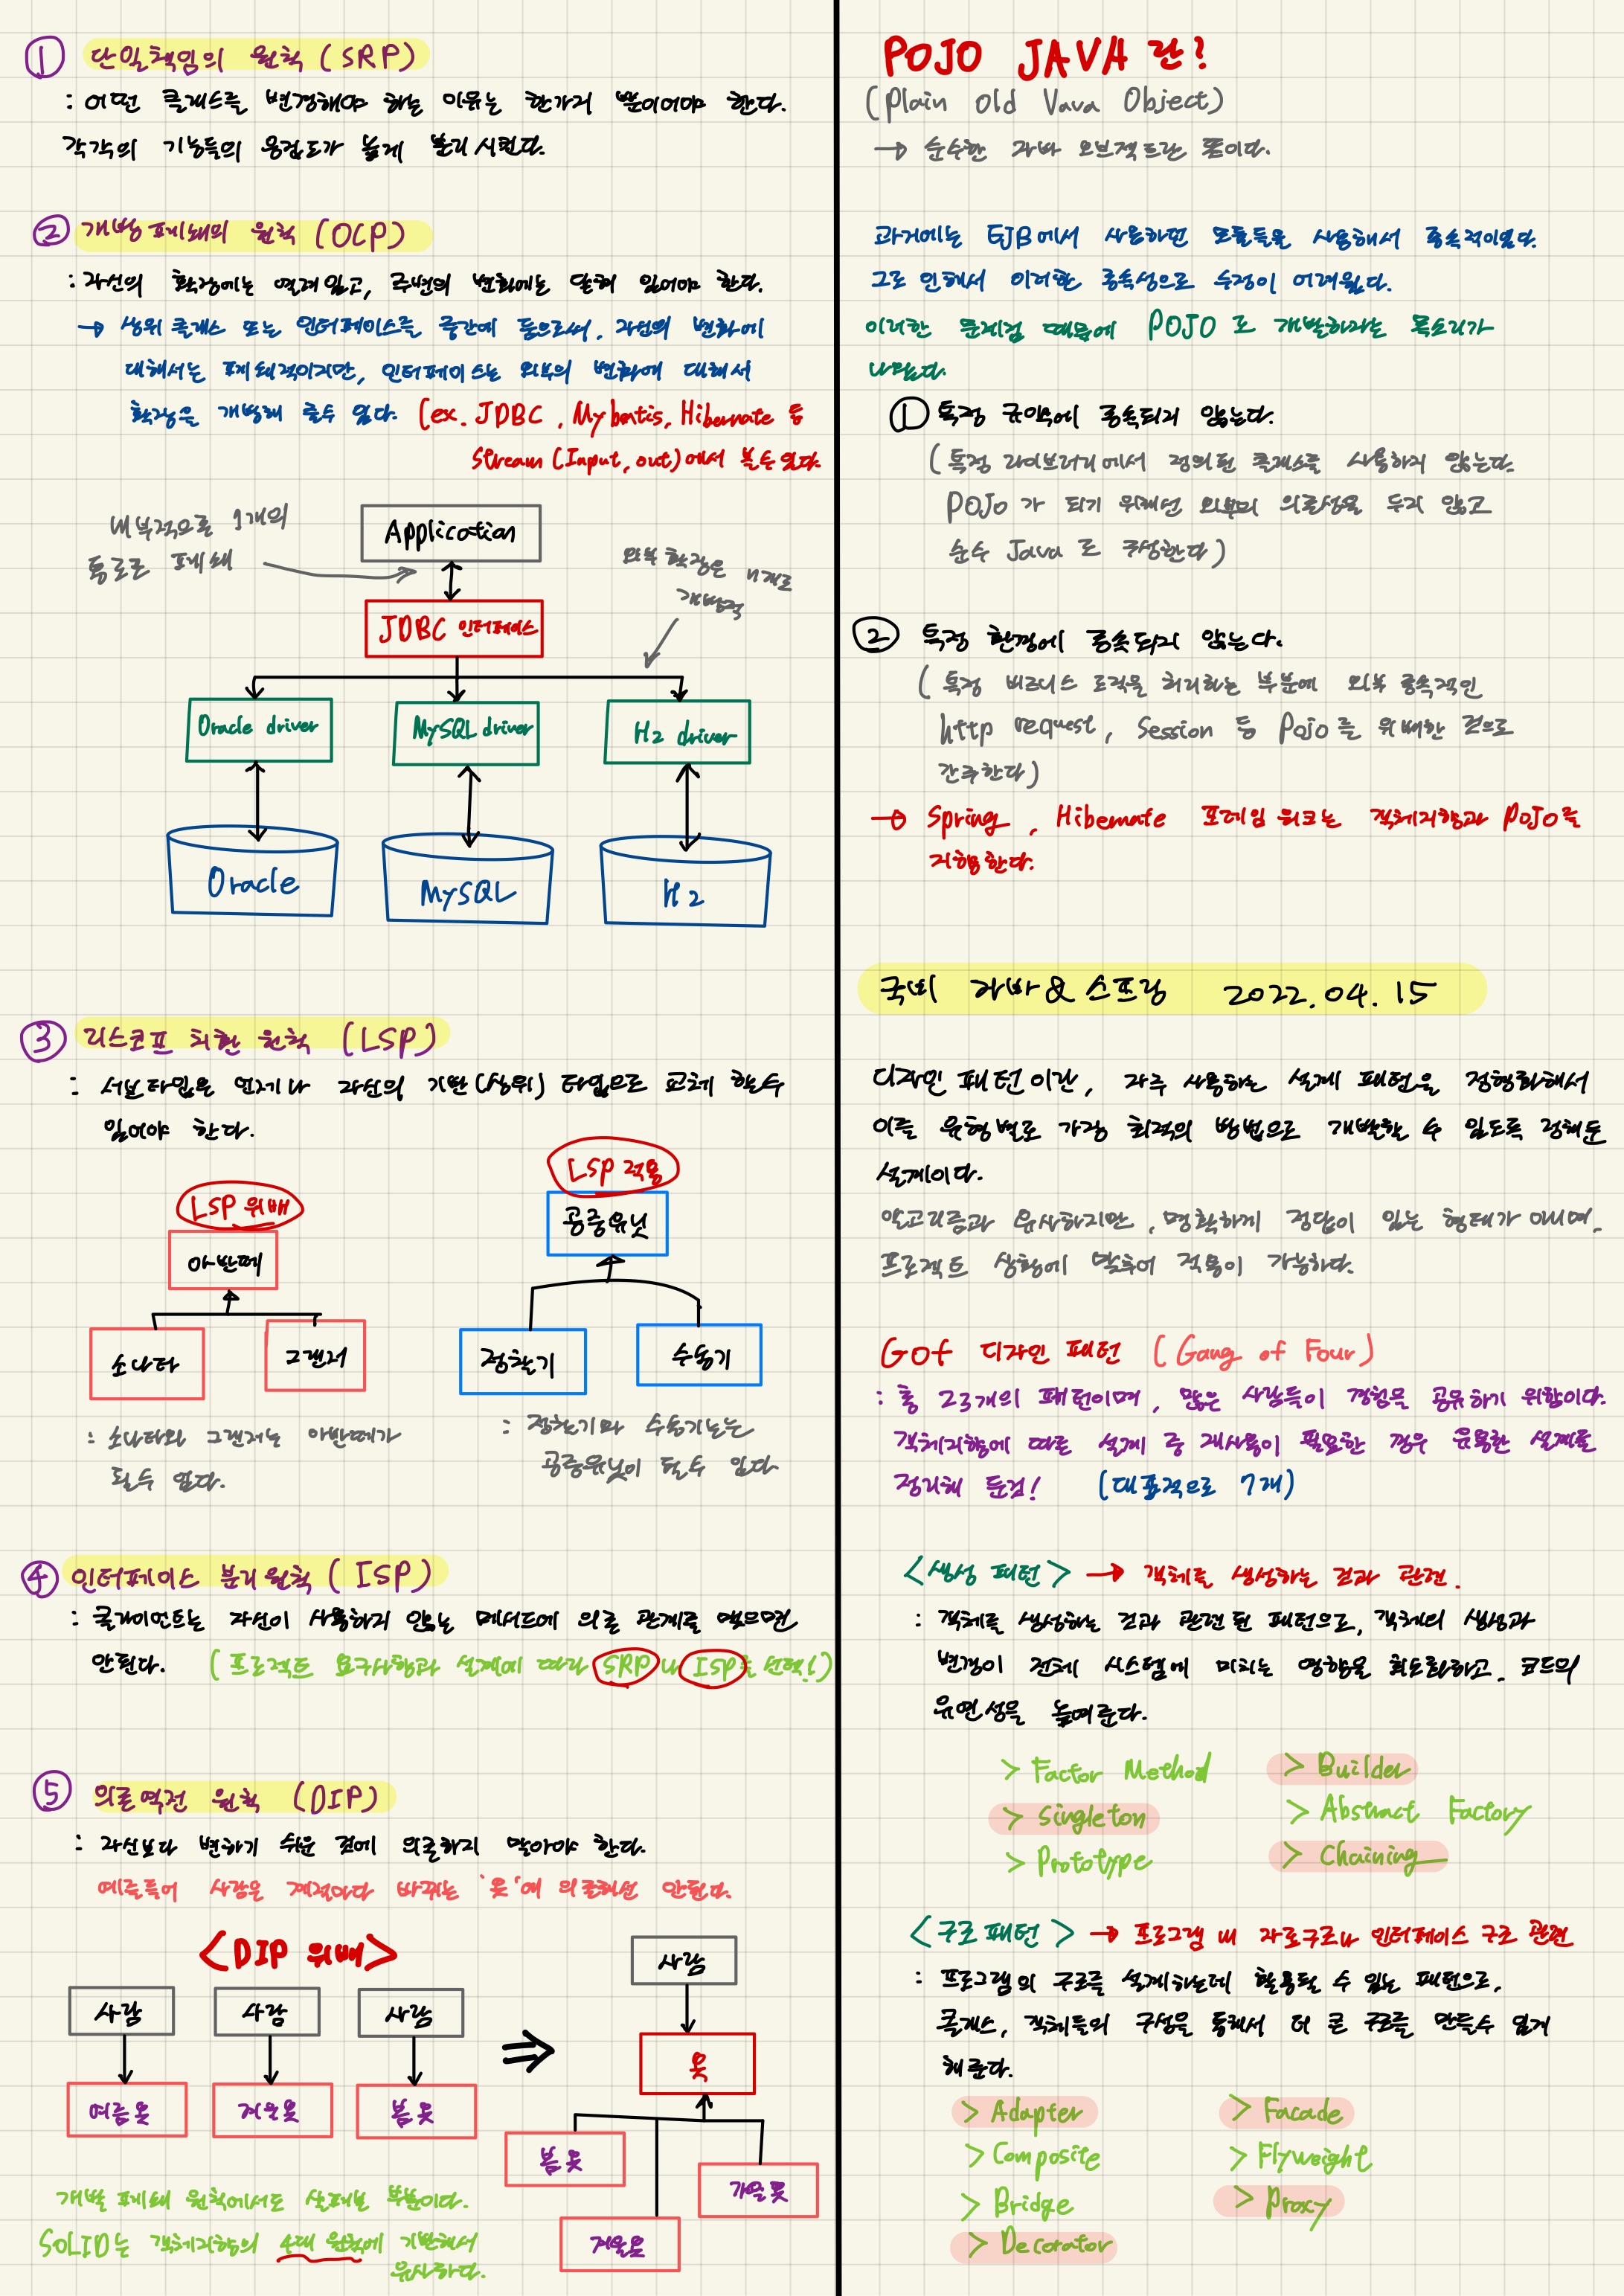 ① 단일책임의 원칙 (SRP)
: 어떤 클래스를 변경해야 하는 이유는 한가지 뿐이어야 한다.
각각의 기능들의 응집도가 높게 분리 시킨다.
② 개방 폐쇄의 원칙 (OCP)
: 자신의 확장에는 열려 있고, 주변의 변화에는 닫혀 있어야 한다.
→ 상위 클래스 또는 인터페이스를 중간에 둠으로써, 자신의 변화에
대해서는 폐쇄적이지만, 인터페이스는 외부의 변화에 대해서
확장을 개방해 줄수 있다. (ex. JDBC, Mybatis, Hibernate 등
Stream (Input, out)에서 볼수 있다.
내부적으로 1개의
통로로 폐쇄
Application
외부 확장은 n개로
개방적
JDBC 인터페이스
Oracle driver
MySQL driver
H2 driver
Oracle
MySQL
H2
③ 리스코프 치환 원칙 (LSP)
: 서브타입은 언제나 자신의 기반(상위) 타입으로 교체 할수
있어야 한다.
LSP 위배
아반떼
소나타
그랜저
: 소나타와 그랜저는 아반떼가
될수 없다.
LSP 적용
공중유닛
정찰기
수송기
: 정찰기와 수송기는
공중유닛이 될수 있다
④ 인터페이스 분리원칙 (ISP)
: 클라이언트는 자신이 사용하지 않는 메서드에 의존 관계를 맺으면
안된다. (프로젝트 요구사항과 설계에 따라 SRP나 ISP를 선택!)
⑤ 의존 역전 원칙 (DIP)
: 자신보다 변하기 쉬운 것에 의존하지 말아야 한다.
예를들어 사람은 계절마다 바뀌는 '옷'에 의존해선 안된다.
<DIP 위배>
사람
사람
사람
여름옷
겨울옷
봄옷
⇒
사람
옷
봄옷
가을옷
겨울옷
개방 폐쇄 원칙에서도 살펴본 부분이다.
SOLID는 객체지향의 4대 원칙에 기반해서
유사하다.
POJO JAVA 란?
(Plain Old Vava Object)
→ 순수한 자바 오브젝트란 뜻이다.
과거에는 EJB에서 사용하던 모듈들을 사용해서 종속적이었다.
그로 인해서 이러한 종속성으로 수정이 어려웠다.
이러한 문제점 때문에 POJO 로 개발하자는 목소리가
나왔다.
① 특정 규약에 종속되지 않는다.
(특정 라이브러리에서 정의된 클래스를 사용하지 않는다.
POJO 가 되기 위해선 외부의 의존성을 두지 않고
순수 Java 로 구성한다)
② 특정 환경에 종속되지 않는다.
(특정 비즈니스 로직을 처리하는 부분에 외부 종속적인
http request, Session 등 Pojo를 위배한 것으로
간주한다)
→ Spring, Hibernate 프레임 워크는 객체지향과 POJO를
지향한다.
국비 자바 & 스프링 2022.04.15
디자인 패턴 이란, 자주 사용하는 설계 패턴을 정형화해서
이를 유형 별로 가장 최적의 방법으로 개발할 수 있도록 정해둔
설계이다.
알고리즘과 유사하지만, 명확하게 정답이 있는 형태가 아니며,
프로젝트 상황에 맞추어 적용이 가능하다.
Gof 디자인 패턴 (Gang of Four)
: 총 23개의 패턴이며, 많은 사람들이 경험을 공유하기 위함이다.
객체지향에 따른 설계 중 재사용이 필요한 경우 유용한 설계를
정리해 둔것! (대표적으로 7개)
<생성 패턴> → 객체를 생성하는 것과 관련.
: 객체를 생성하는 것과 관련된 패턴으로, 객체의 생성과
변경이 전체 시스템에 미치는 영향을 최소화하고, 코드의
유연성을 높여준다.
> Factor Method
> Builder
> Singleton
> Abstract Factory
> Prototype
> Chaining
<구조 패턴> → 프로그램 내 자료구조나 인터페이스 구조 관련
: 프로그램의 구조를 설계하는데 활용될 수 있는 패턴으로,
클래스, 객체들의 구성을 통해서 더 큰 구조를 만들수 있게
해준다.
> Adapter
> Facade
> Composite
> Flyweight
> Bridge
> Proxy
> Decorator